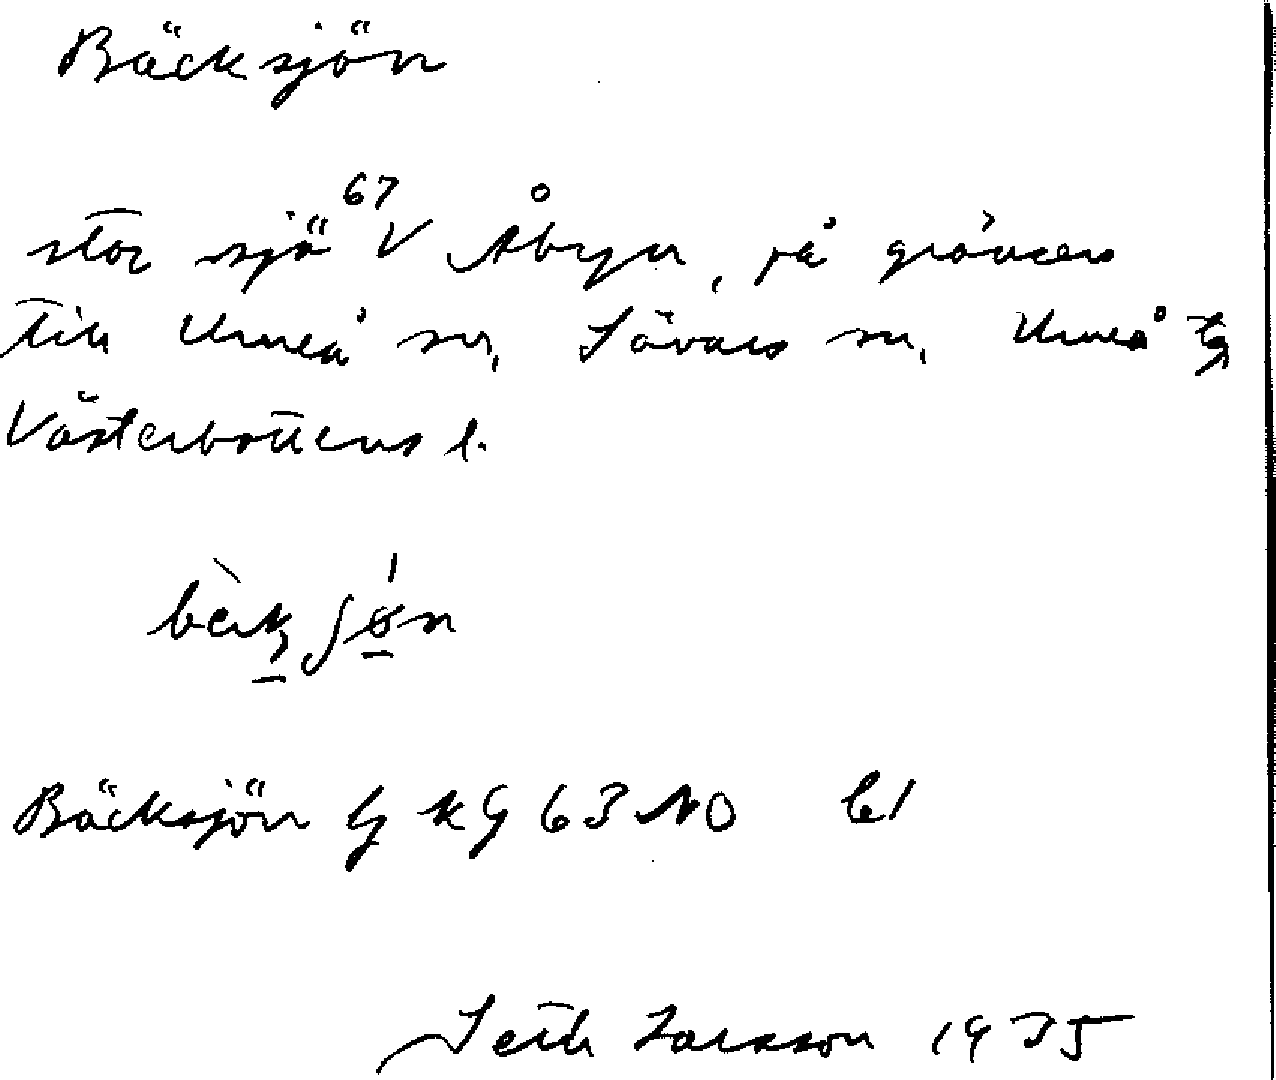 Bäcksjön
67
stor sjö V Åbyn, på gränsen
till Umeå sn, Sävars sn, Umeå tg
Västerbottens l.
Bäcksjön G kg 63 NO bl
Seth Larsson 1935